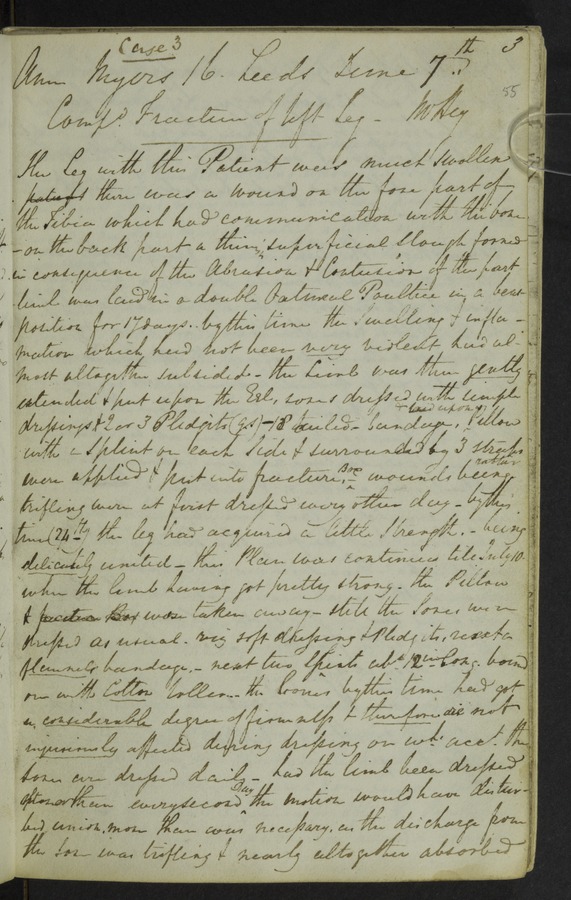 Case 3
3
Ann Myers 16. Leeds June 7th
55
Compd. Fracture of left Leg - Mr Hey
The Leg with this Patient was much swollen
patient there was a wound on the fore part of
the Tibia which had communication with the bone
- on the back part a thin, superficial Slough formed
in consequence of the Abrasion & Contusion of the part
limb was laid in a double Oatmeal Poultice in a bent
position for 17 days. by this time the Swelling & infla-
mation which had not been very violent had al-
most altogether subsided - the Limb was then gently
extended & put upon the sores dressed with simple
dressings & 2 or 3 Pledgits - 18 tailed bandage, laid upon a Pillow
with a Splint on each Side & surrounded by 3 straps
were applied & put into fracture Box wounds being rather
trifling were at first dressed every other day - by this
time (24th) the leg had acquired a little Strength, - being
delicately united - this Plan was continued till July 10
when the limb having got pretty strong - the Pillow
& fracture Box was taken away - still the Sores were
dressed as usual. viz soft dressing & Pledgits, next a
flannel bandage, - next two Splints abt. 12 in Long. bound
on with Cotton roller - the bones by this time had got
a considerable degree of firmness & therefore not
injuriously affected during dressing on wh. acct. the
sores are dressed daily - had the limb been dressed
oftener than every second Day the motion would have distur-
bed union, more than was necessary, as the discharge from
the sore was trifling & nearly altogether absorbed